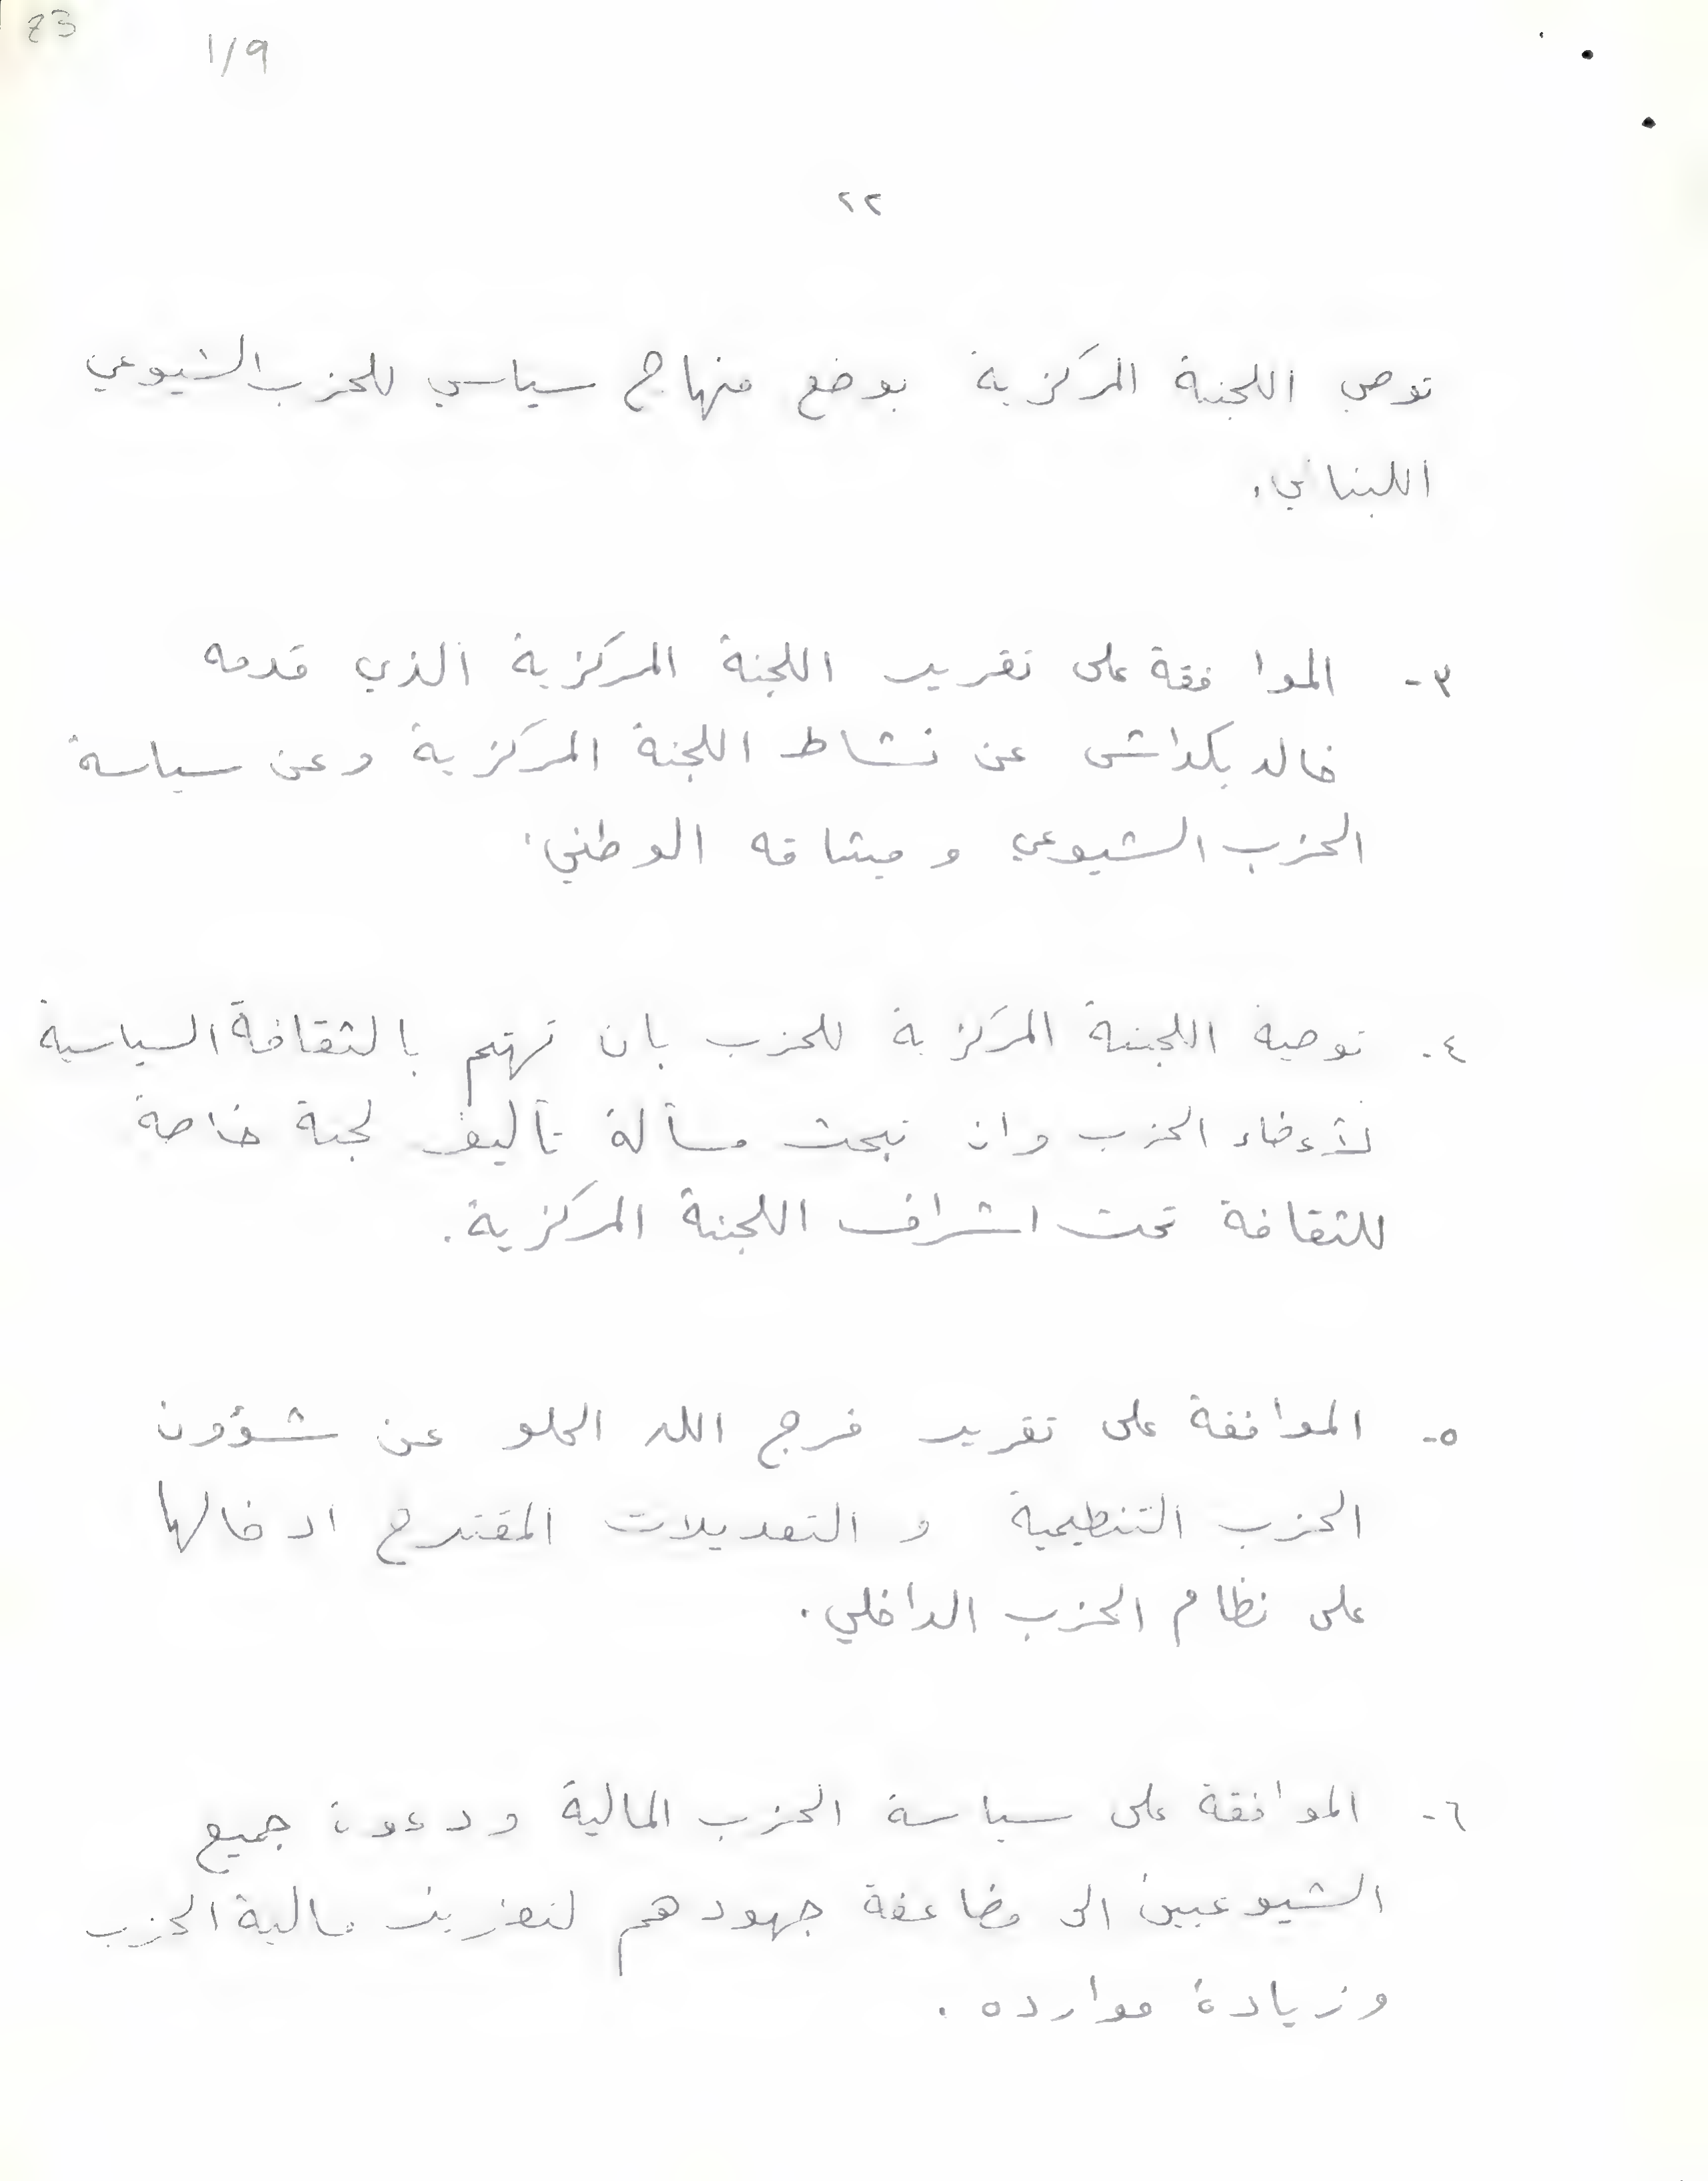 23
1/9
٢٢
توصي اللجنة المركزية بوضع منهاج سياسي للحزب الشيوعي
اللبناني.
٣- الموافقة على تقرير اللجنة المركزية الذي قدمه
خالد بكداش عن نشاط اللجنة المركزية وعن سياسة
الحزب الشيوعي وميثاقه الوطني.
٤- توصية اللجنة المركزية للحزب بان تهتم بالثقافة السياسية
لأعضاء الحزب وان تبحث مسألة تأليف لجنة خاصة
للثقافة تحت اشراف اللجنة المركزية.
٥- الموافقة على تقرير فرج الله الحلو عن شؤون
الحزب التنظيمية و التعديلات المقترح ادخالها
على نظام الحزب الداخلي.
٦- الموافقة على سياسة الحزب المالية ودعوة جميع
الشيوعيين الى مضاعفة جهودهم لتعزيز مالية الحزب
وزيادة موارده.